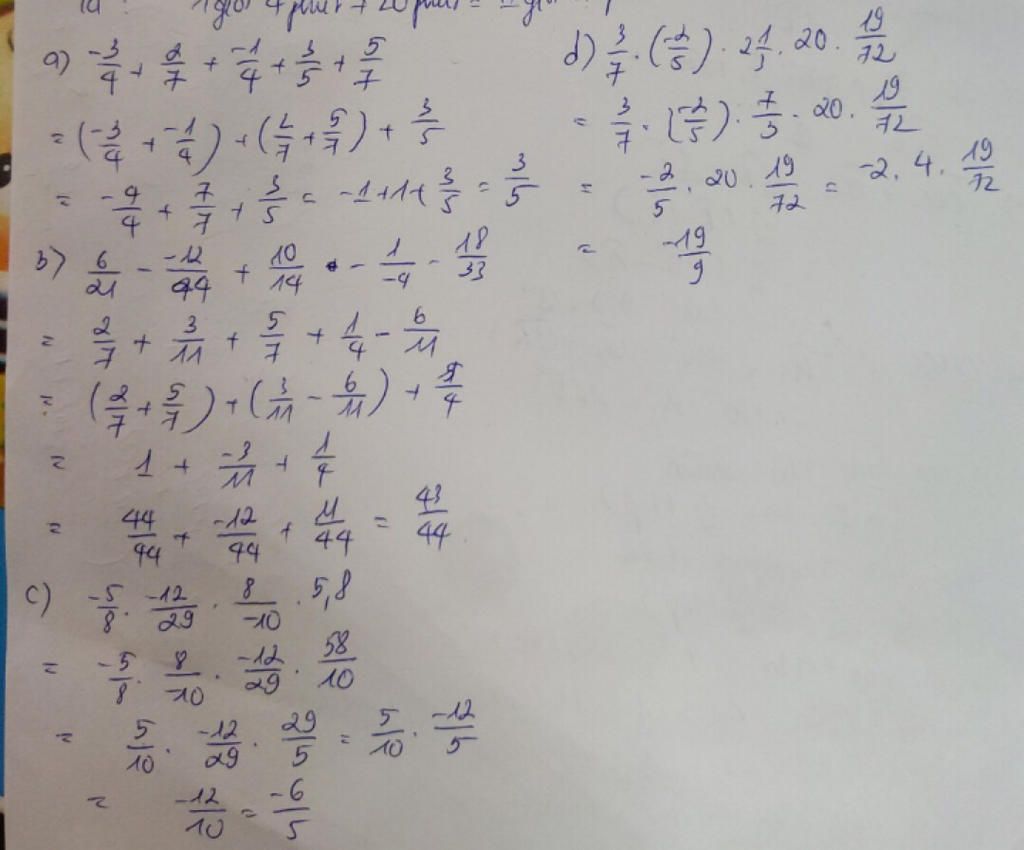 1 giờ 4 phút + 20 phút =
a) \frac{-3}{4} + \frac{2}{7} + \frac{-1}{4} + \frac{3}{5} + \frac{5}{7}
= (\frac{-3}{4} + \frac{-1}{4}) + (\frac{2}{7} + \frac{5}{7}) + \frac{3}{5}
= \frac{-4}{4} + \frac{7}{7} + \frac{3}{5} = -1 + 1 + \frac{3}{5} = \frac{3}{5}
b) \frac{6}{21} - \frac{-12}{44} + \frac{10}{14} - \frac{1}{-4} - \frac{18}{33}
= \frac{2}{7} + \frac{3}{11} + \frac{5}{7} + \frac{1}{4} - \frac{6}{11}
= (\frac{2}{7} + \frac{5}{7}) + (\frac{3}{11} - \frac{6}{11}) + \frac{1}{4}
= 1 + \frac{-3}{11} + \frac{1}{4}
= \frac{44}{44} + \frac{-12}{44} + \frac{11}{44} = \frac{43}{44}
c) \frac{-5}{8} . \frac{-12}{29} . \frac{8}{-10} . 5,8
= \frac{-5}{8} . \frac{8}{-10} . \frac{-12}{29} . \frac{58}{10}
= \frac{5}{10} . \frac{-12}{29} . \frac{29}{5} = \frac{5}{10} . \frac{-12}{5}
= \frac{-12}{10} = \frac{-6}{5}
d) \frac{3}{7} . (\frac{-2}{5}) . 2\frac{1}{3} . 20 . \frac{19}{72}
= \frac{3}{7} . (\frac{-2}{5}) . \frac{7}{3} . 20 . \frac{19}{72}
= \frac{-2}{5} . 20 . \frac{19}{72} = -2 . 4 . \frac{19}{72}
= \frac{-19}{9}